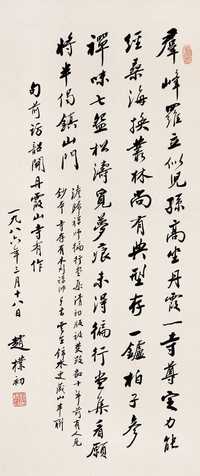 羣峰羅立似兒孫高坐丹霞一寺尊定力能
經桑海換叢林尚有典型存一鑪柏子參
禪味七盌松濤覓夢痕未得徧行堂集看願
將半偈鎮山門
澹歸禪師徧行堂集清初版毀 十年前有人見
鈔本寺存有木刻
旬前訪韶關丹霞山寺有作
一九八六年三月十八日
趙樸初